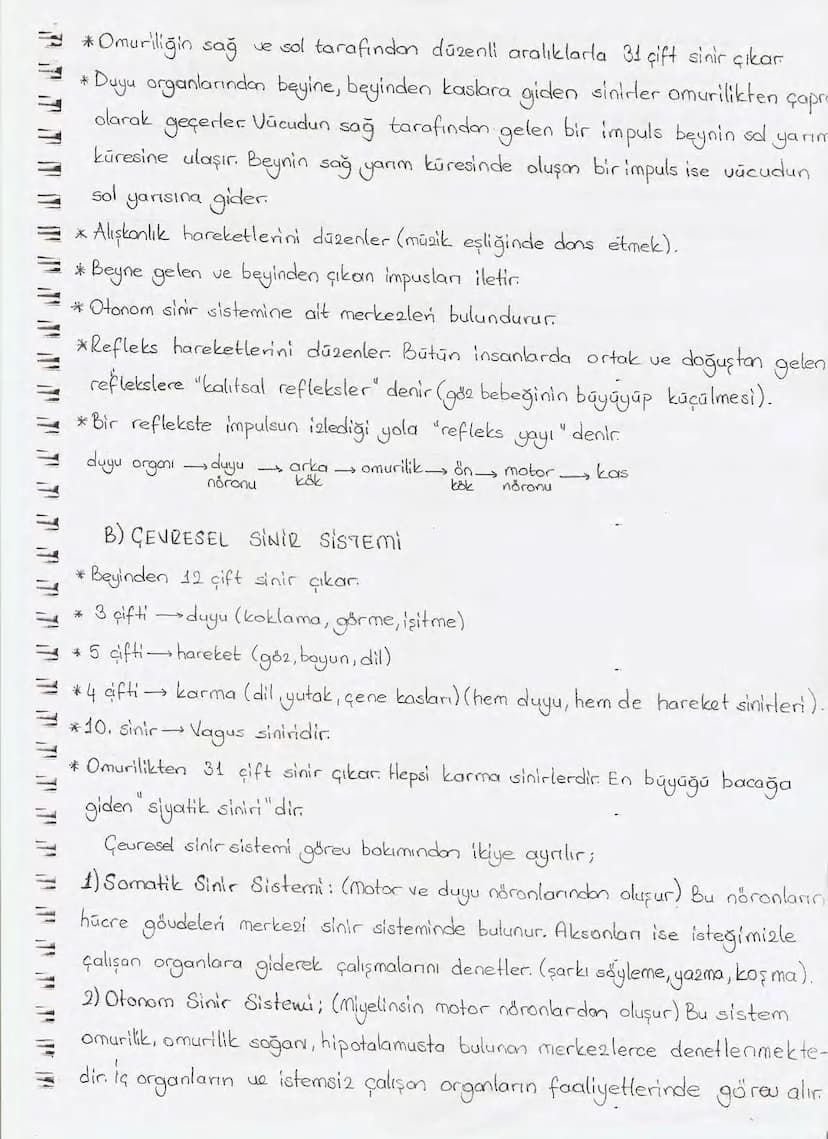 * Omuriliğin sağ ve sol tarafından düzenli aralıklarla 31 çift sinir çıkar
* Duyu organlarından beyine, beyinden kaslara giden sinirler omurilikten çapr
olarak geçerler. Vücudun sağ tarafından gelen bir impuls beynin sol yarım
küresine ulaşır. Beynin sağ yarım küresinde oluşan bir impuls ise vücudun
sol yarısına gider.
* Alışkanlık hareketlerini düzenler (müzik eşliğinde dans etmek).
* Beyne gelen ve beyinden çıkan impusları iletir.
* Otonom sinir sistemine ait merkezleri bulundurur.
* Refleks hareketlerini düzenler. Bütün insanlarda ortak ve doğuştan gelen
reflekslere "kalıtsal refleksler" denir (göz bebeğinin büyüyüp küçülmesi).
* Bir reflekste impulsun izlediği yola "refleks yayı" denir.
duyu organı → duyu → arka → omurilik → ön → motor → kas
nöronu kök kök nöronu
B) ÇEVRESEL SİNİR SİSTEMİ
* Beyinden 12 çift sinir çıkar.
* 3 çifti → duyu (koklama, görme, işitme)
* 5 çifti → hareket (göz, boyun, dil)
* 4 çifti → karma (dil, yutak, çene kasları) (hem duyu, hem de hareket sinirleri).
* 10. sinir → Vagus siniridir.
* Omurilikten 31 çift sinir çıkar. Hepsi karma sinirlerdir. En büyüğü bacağa
giden "siyatik siniri" dir.
Çevresel sinir sistemi görev bakımından ikiye ayrılır;
1) Somatik Sinir Sistemi: (Motor ve duyu nöronlarından oluşur) Bu nöronların
hücre gövdeleri merkezi sinir sisteminde bulunur. Aksonları ise isteğimizle
çalışan organlara giderek çalışmalarını denetler. (şarkı söyleme, yazma, koşma).
2) Otonom Sinir Sistemi; (Miyelinsin motor nöronlardan oluşur) Bu sistem
omurilik, omurilik soğanı, hipotalamusta bulunan merkezlerce denetlenmekte-
dir. İç organların ve istemsiz çalışan organların faaliyetlerinde görev alır.